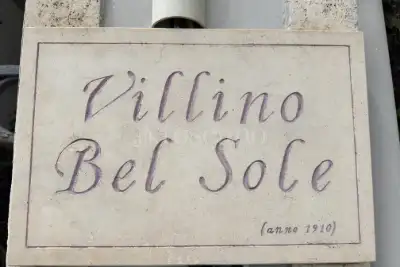 Villino
Bel Sole
(anno 1910)